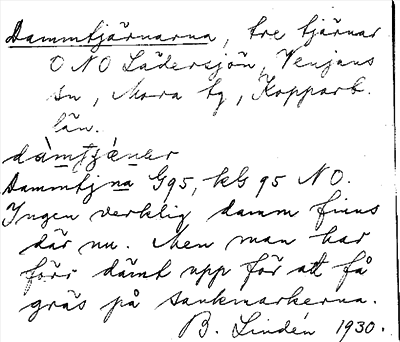 Dammtjärnarna, tre tjärnar
O N O Lädersjön, Venjans
sn, Mora tg, Kopparb.
län.
dàmtjǽnar
Dammtjna G95, kG 95 NO.
Ingen verklig damm finns
där nu. Men man har
förr dämt upp för att få
gräs på sankmarkerna.
B. Lindén 1930.